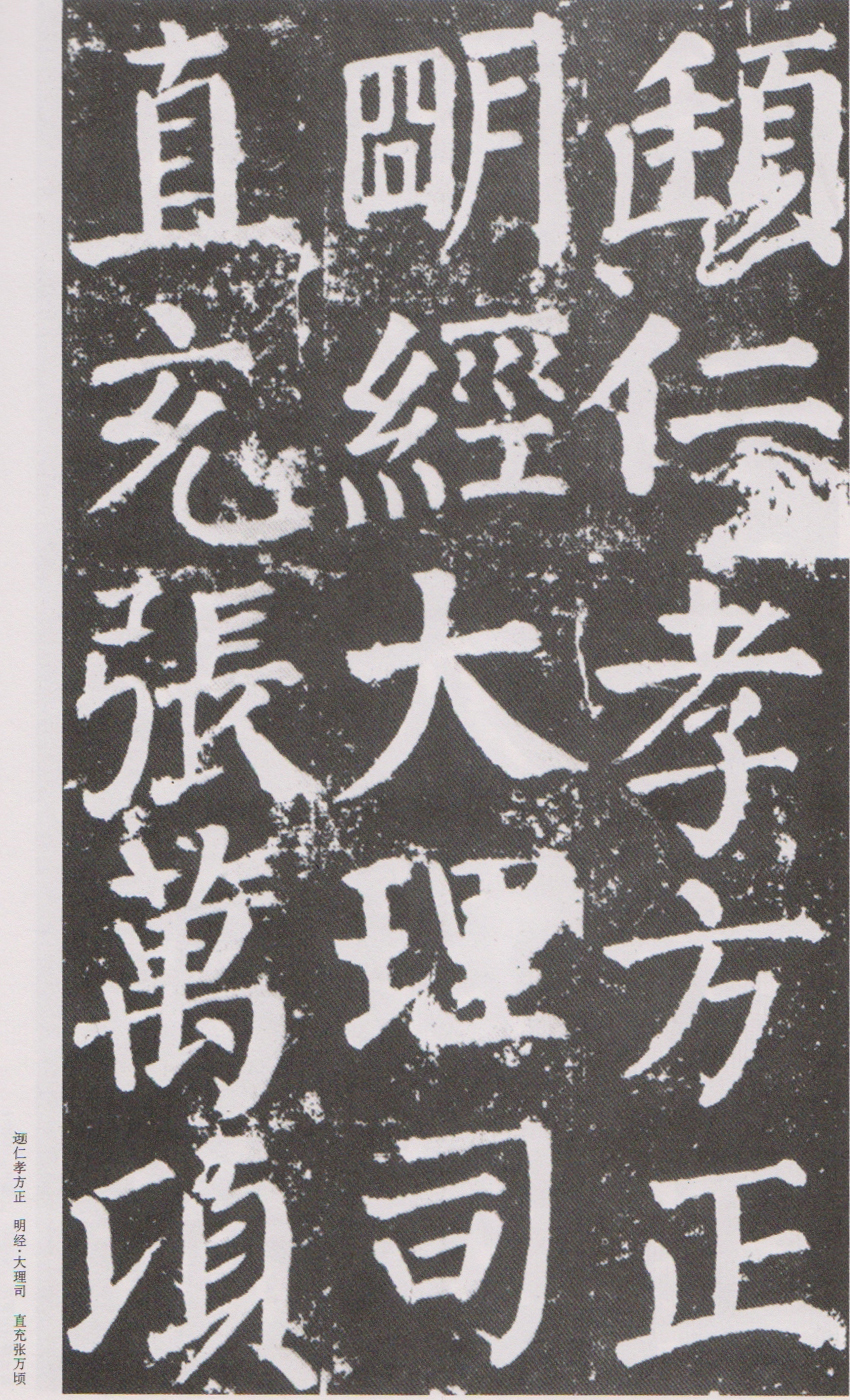 頲仁孝方正
朙經大理司
直充張萬頃
颋仁孝方正 明经·大理司 直充张万顷